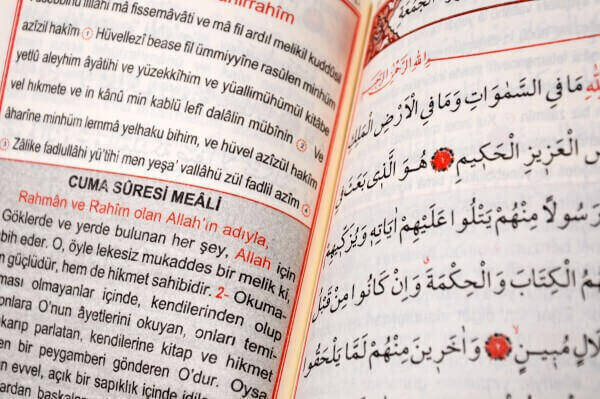 Yüsebbihu lillâhi mâ fissemâvâti ve mâ fil ardil melikil kuddûsil
azîzil hakîm 1 Hüvellezî bease fil ümmiyyîne rasûlen minhüm
yetlû aleyhim âyâtihi ve yüzekkîhim ve yüallimühümül kitâbe
vel hıkmete ve in kânû min kablü lefî dalâlin mübînin 2 Ve
âharîne minhüm lemmâ yelhaku bihim, ve hüvel azîzül hakîm
3 Zâlike fadlullâhi yü'tîhi men yeşa' vallâhü zül fadlil azîm 4
CUMA SÛRESİ MEÂLİ
Rahmân ve Rahîm olan Allah'ın adıyla,
Göklerde ve yerde bulunan her şey, Allah için
bih eder. O, öyle lekesiz mukaddes bir melik ki,
güçlüdür, hem de hikmet sahibidir. 2- Okuma-
ması olmayanlar içinde, kendilerinden olup
onlara O'nun âyetlerini okuyan, onları temi-
karıp parlatan, kendilerine kitap ve hikmet
en bir peygamberi gönderen O'dur. Oysa
n evvel, açık bir sapıklık içinde idi
الجمعة
الله الرحمن الرحيم
لله مَا فِي السَّمٰوَاتِ وَمَا فِي الْاَرْضِ الْمَلِكِ
سِ الْعَزِيزِ الْحَكِيمِ ١ هُوَ الَّذِي بَعَثَ فِي
رَسُولًا مِنْهُمْ يَتْلُوا عَلَيْهِمْ اٰيَاتِهٖ وَيُزَكِّيهِمْ
هُمُ الْكِتَابَ وَالْحِكْمَةَ وَاِنْ كَانُوا مِنْ قَبْلُ
لَالٍ مُبِينٍ ٢ وَاٰخَرِينَ مِنْهُمْ لَمَّا يَلْحَقُوا